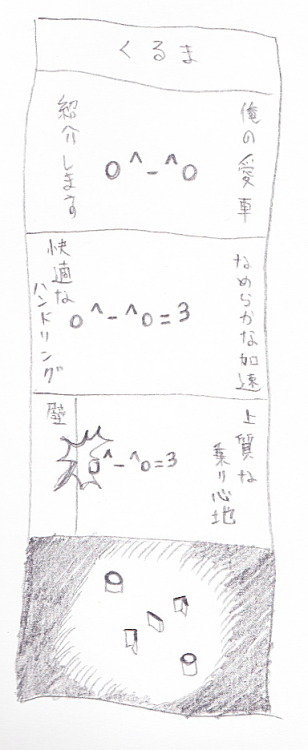 くるま
俺の愛車
o^-^o
紹介します
なめらかな加速
o^-^o=3
快適な
ハンドリング
上質な
乗り心地
o^-^o=3
壁